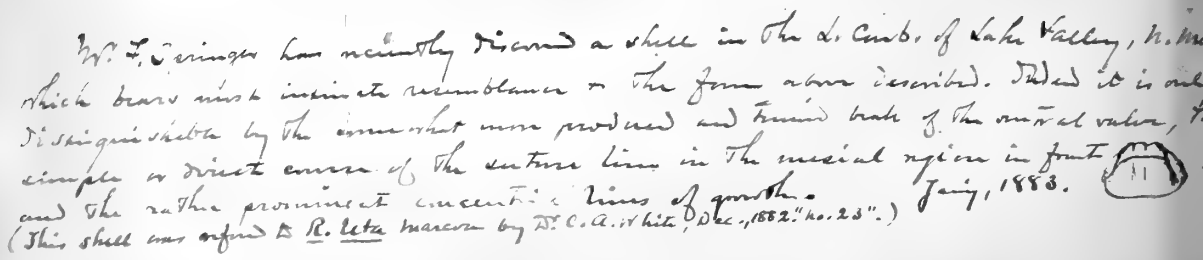 Mr. F. Springer has recently discovered a shell in the L. Carb. of Lake Valley, N. M
which bears most intimate resemblance to the form above described. Indeed it is only
distinguishable by the somewhat more produced and beak of the ventral valve, the
simple or direct course of the suture line in the mesial region in front
and the rather prominent concentric lines of growth. Jany, 1883.
(This shell was refered to R. Uta Marcou by Dr. C. A. White, Dec., 1882. "no. 23".)